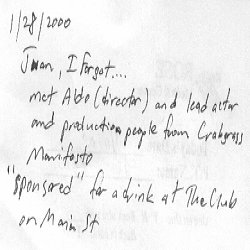 1/28/2000
Juan, I forgot...
met Aldo (director) and lead actor
and production people from Crabgrass
Manifesto
"sponsored" for a drink at The Club
on Main St